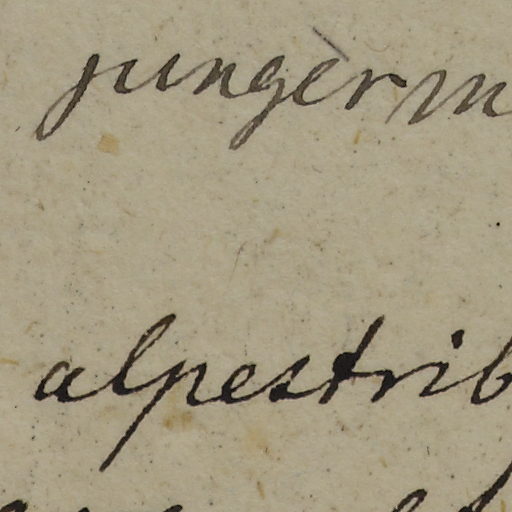 jungèrm
alpestrib